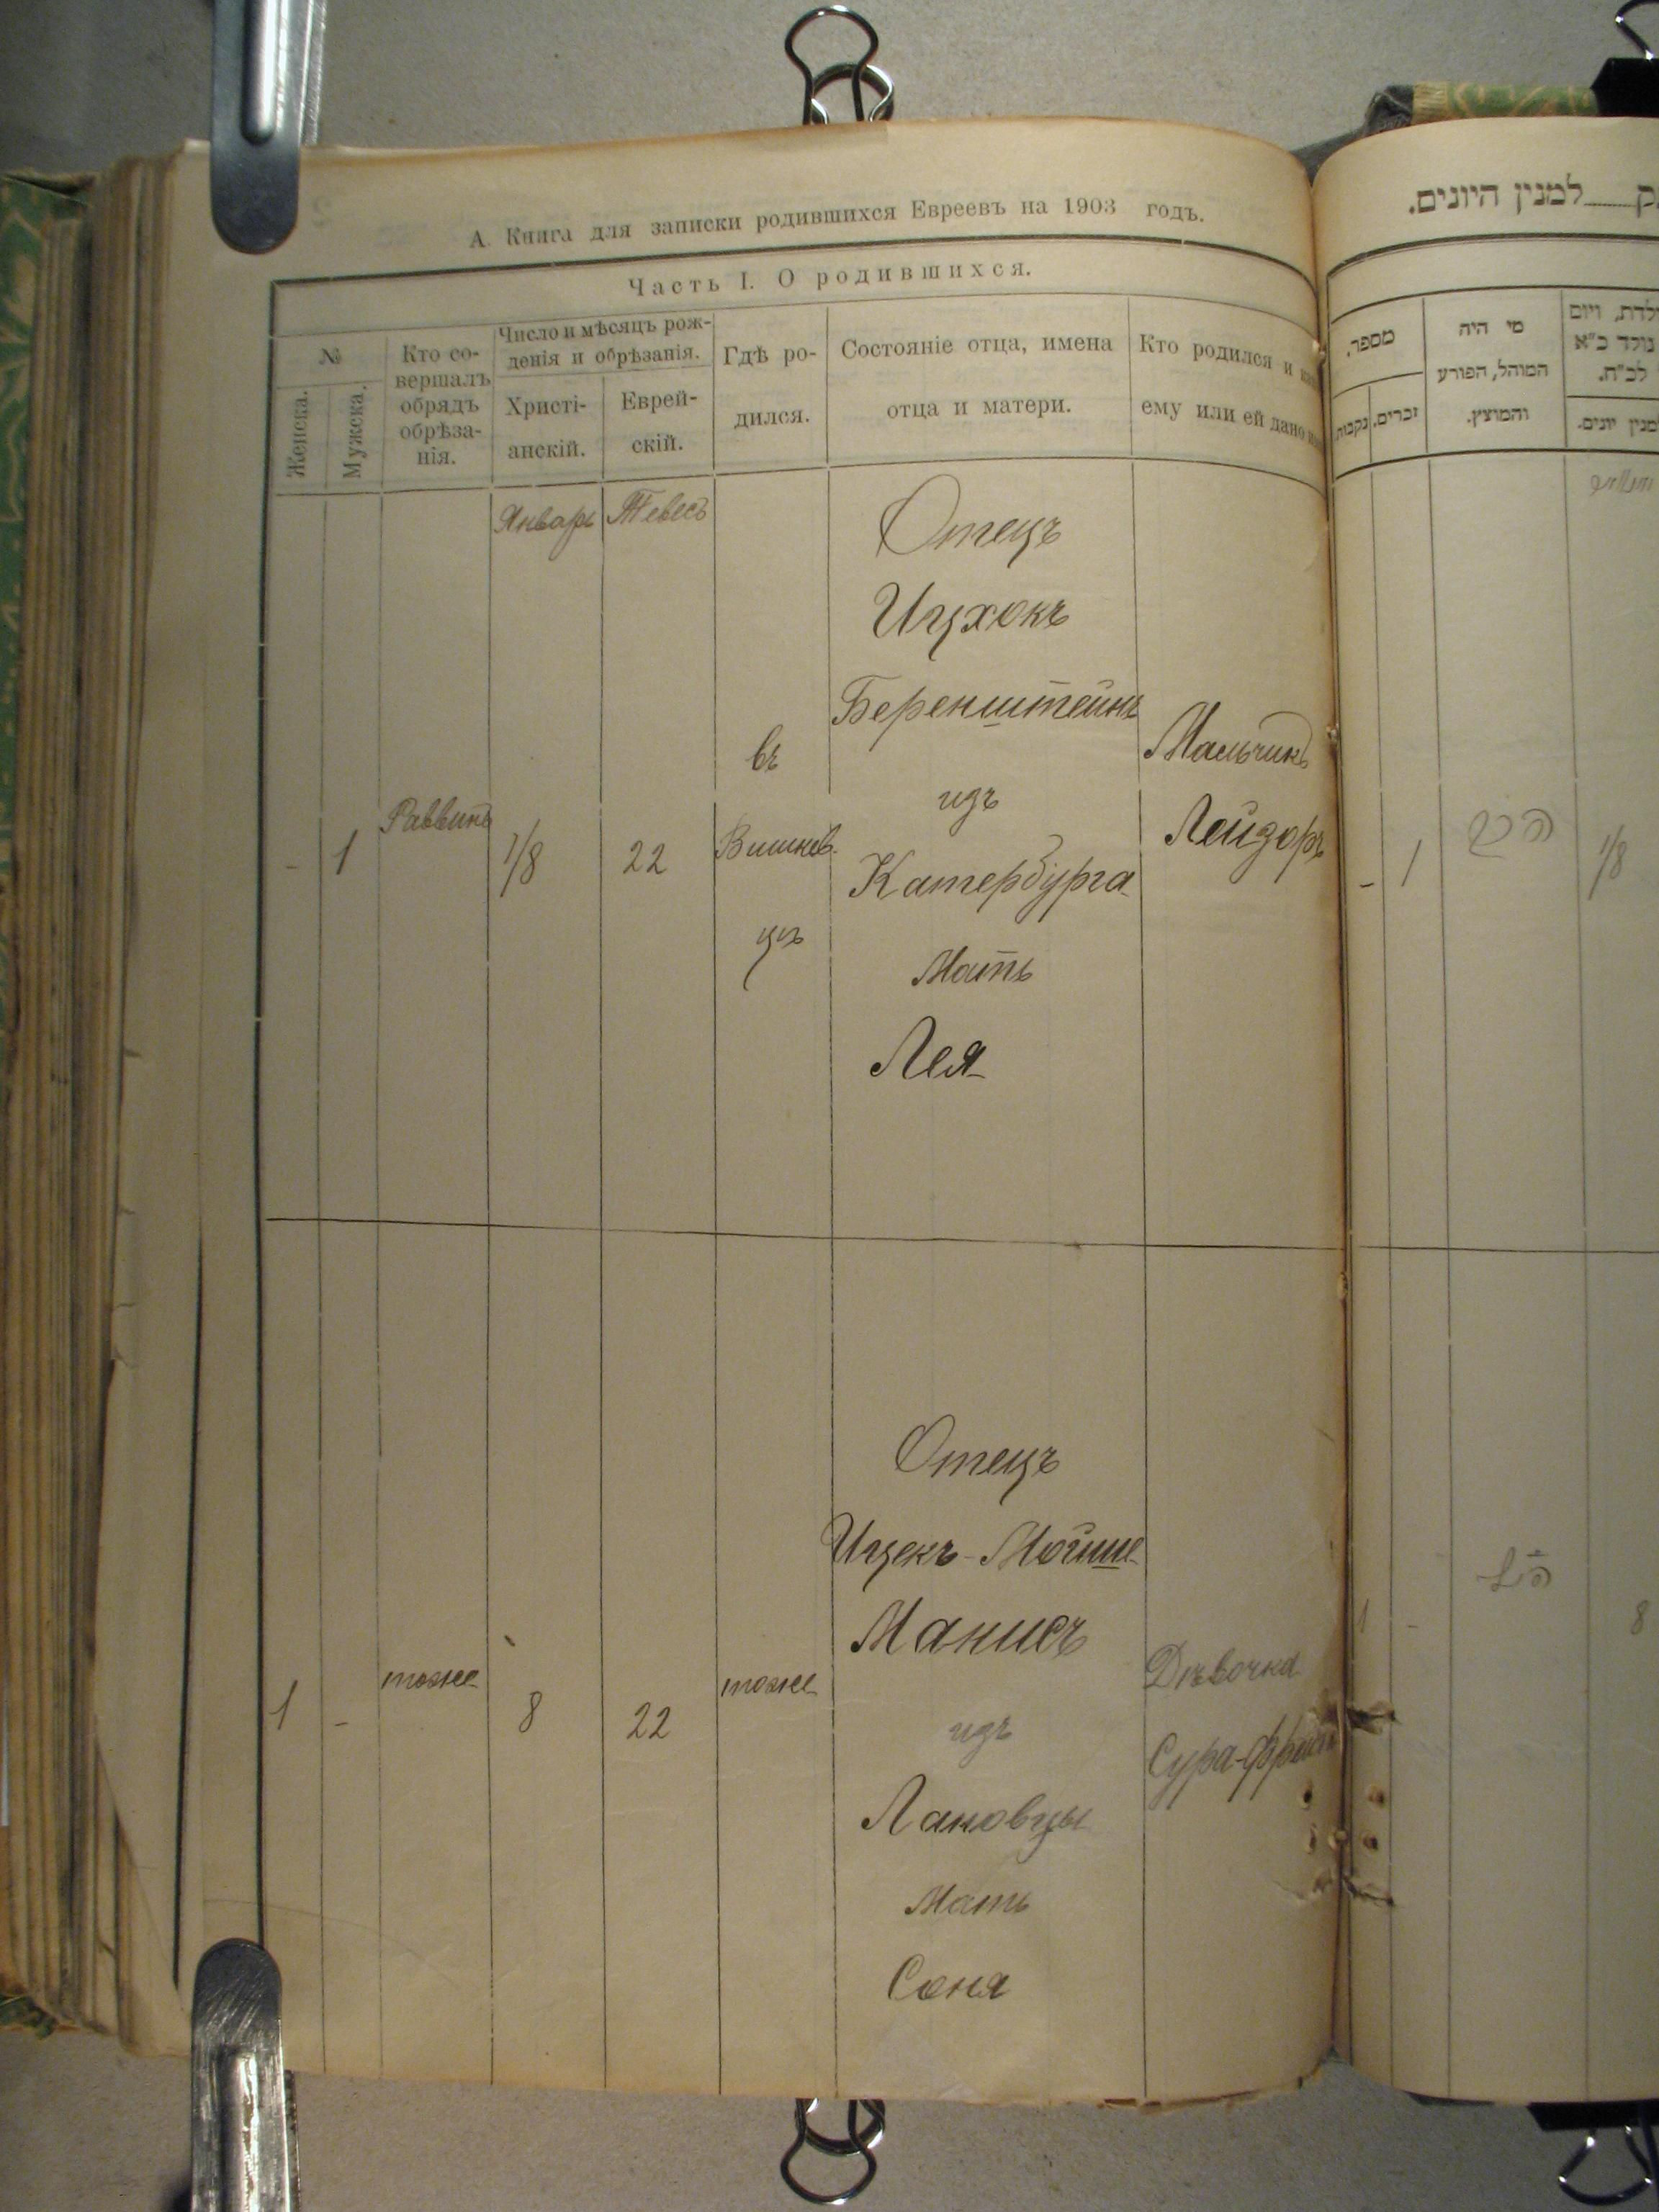 А. Книга для записки родившихся Евреевъ на 1903 годъ.
Часть I. О родившихся.
№
Женска.
Мужеска.
Кто со-
вершалъ
обрядъ
обрѣза-
нія.
Число и мѣсяцъ рож-
денія и обрѣзанія.
Христі-
анскій.
Еврей-
скій.
Гдѣ ро-
дился.
Состояніе отца, имена
отца и матери.
Кто родился и
ему или ей дано
Январь Тевесъ
- 1 Раввинъ 1/8 22
въ
Вишнев-
цѣ
Отецъ
Ицхокъ
Беренштейнъ
изъ
Катербурга
Мать
Лея
Мальчикъ
Лейзоръ
1 - тоже 8 22 тоже
Отецъ
Ицекъ-Мойше
Манисъ
изъ
Лановцы
Мать
Соня
Дѣвочка
Сура-
למנין היונים.
מספר.
זכרים.
נקבות.
מי היה
המוהל, הפורע
והמוצץ.
ויום
נולד כ"א
לכ"ח.
יונים.
- 1 1/8
1 - 8